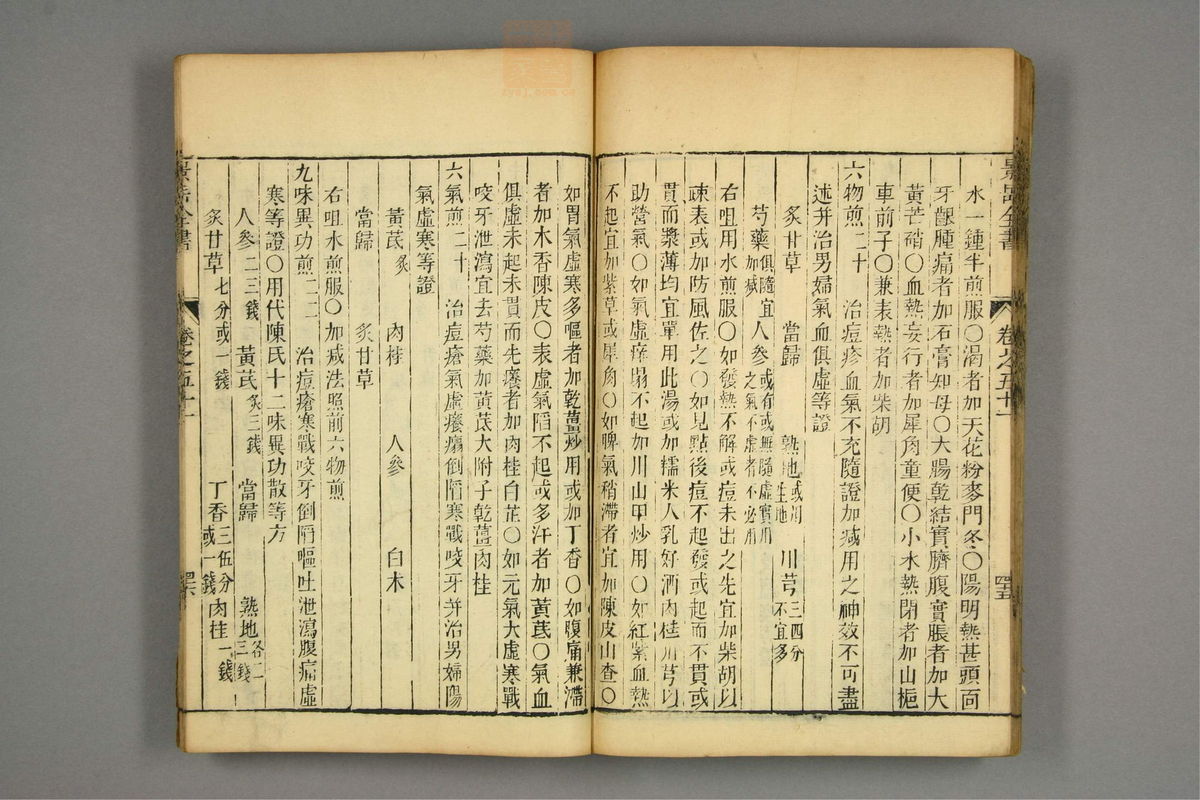 景岳全書 卷之五十一 四五
水一鍾半煎服○渴者加天花粉麥門冬○陽明熱甚頭面
牙齦腫痛者加石膏知母○大腸乾結實臍腹實脹者加大
黃芒硝○血熱妄行者加犀角童便○小水熱閉者加山梔
車前子○兼表熱者加柴胡
六物煎二十 治痘疹血氣不充隨證加减用之神效不可盡
述并治男婦氣血俱虛等證
炙甘草 當歸 熟地或用生地 川芎三四分不宜多
芍藥俱隨宜加减 人參或有或無隨虛實用之氣不虛者不必用
右㕮咀用水煎服○如發熱不解或痘未出之先宜加柴胡以
疎表或加防風佐之○如見點後痘不起發或起而不貫或
貫而漿薄均宜單用此湯或加糯米人乳好酒肉桂川芎以
助營氣○如氣虛痒塌不起加川山甲炒用○如紅紫血熱
不起宜加紫草或犀角○如脾氣稍滯者宜加陳皮山查○
如胃氣虛寒多嘔者加乾薑炒用或加丁香○如腹痛兼滯
者加木香陳皮○表虛氣陷不起或多汗者加黃芪○氣血
俱虛未起未貫而先癢者加肉桂白芷○如元氣大虛寒戰
咬牙泄瀉宜去芍藥加黃芪大附子乾薑肉桂
六氣煎二十一 治痘瘡氣虛癢塌倒陷寒戰咬牙并治男婦陽
氣虛寒等證
黃芪炙 肉桂 人參 白朮
當歸 炙甘草
右㕮咀水煎服○加减法照前六物煎
九味異功煎二二 治痘瘡寒戰咬牙倒陷嘔吐泄瀉腹痛虛
寒等證○用代陳氏十二味異功散等方
人參二三錢 黃芪炙三錢 當歸 熟地各二三錢
炙甘草七分或一錢 丁香三伍分或一錢 肉桂一錢
景岳全書 卷之五十一 四六